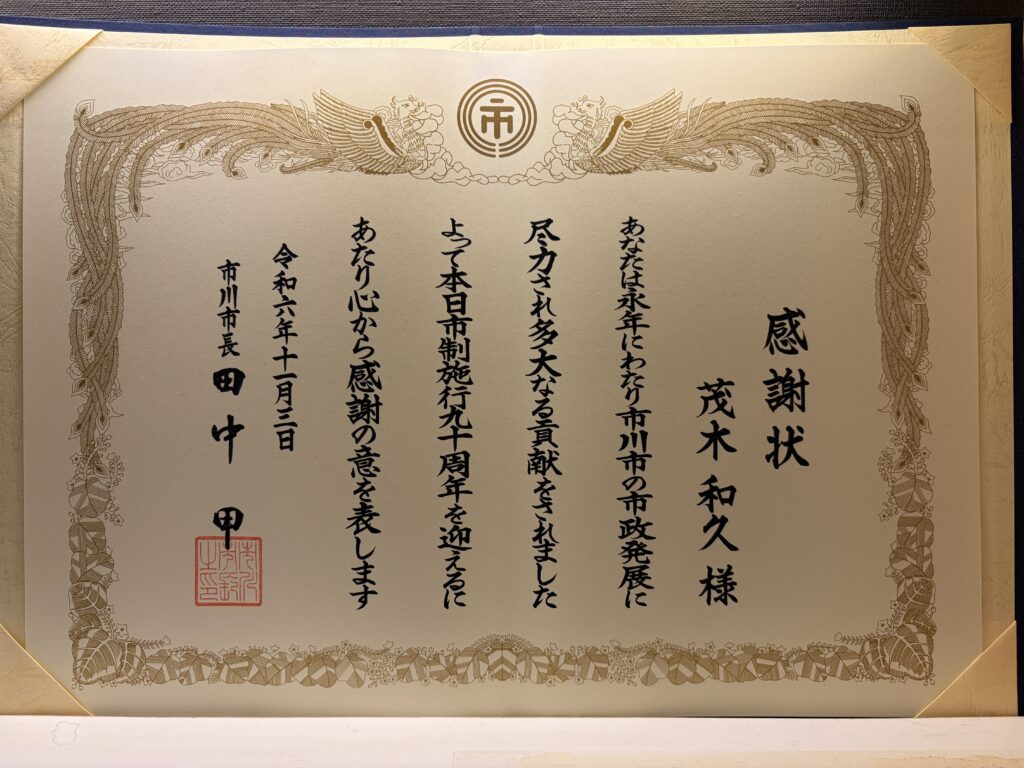 市
感謝状
茂木和久様
あなたは永年にわたり市川市の市政発展に
尽力され多大なる貢献をされました
よって本日市制施行九十周年を迎えるに
あたり心から感謝の意を表します
令和六年十一月三日
市川市長 田中 甲